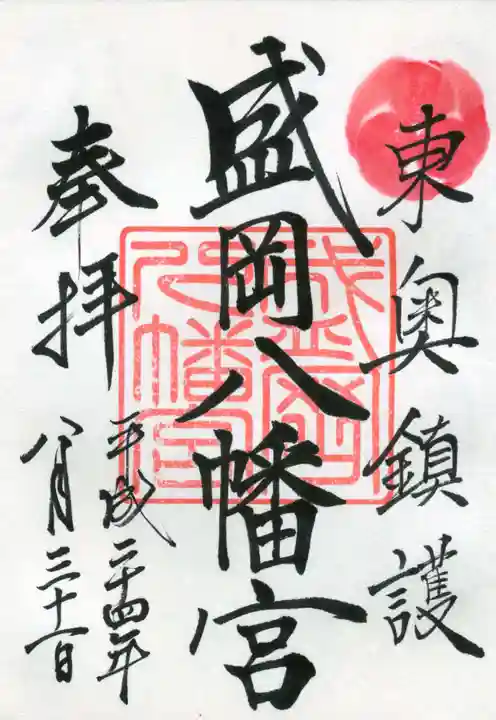 東奥鎮護
盛岡八幡宮
盛岡八幡宮
奉拝
平成二十四年
八月三十一日